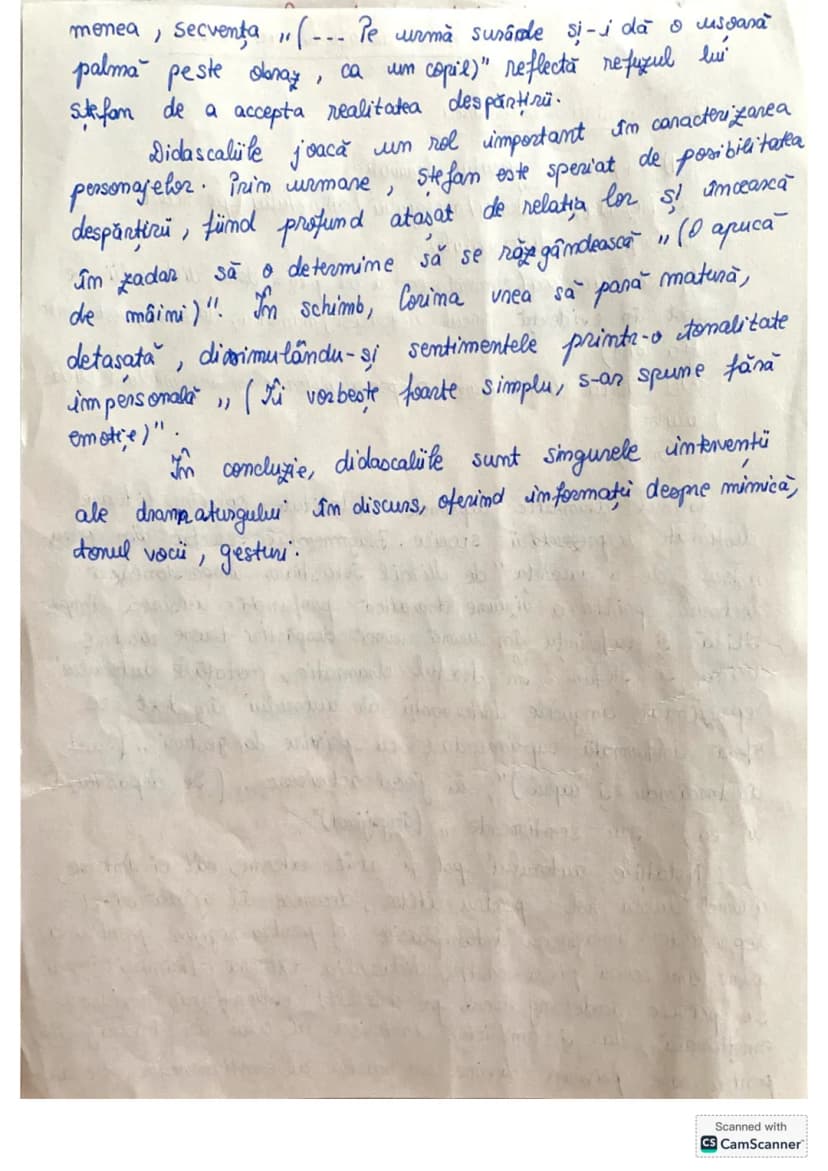 menea, secvența „(... Pe urmă surâde și-i dă o ușoară
palmă peste obraz, ca un copil)" reflectă refuzul lui
Ștefan de a accepta realitatea despărțirii.
Didascaliile joacă un rol important în caracterizarea
personajelor. Prin urmare, Ștefan este speriat de posibilitatea
despărțirii, fiind profund atașat de relația lor și încearcă
în zadar să o determine să se răzgândească „(O apucă
de mâini)". În schimb, Corina vrea să pară matură,
detașată, disimulându-și sentimentele printr-o tonalitate
impersonală „(Îi vorbește foarte simplu, s-ar spune fără
emoție)".
În concluzie, didascaliile sunt singurele intervenții
ale dramaturgului în discurs, oferind informații despre mimică,
tonul vocii, gesturi.
Scanned with
CS CamScanner